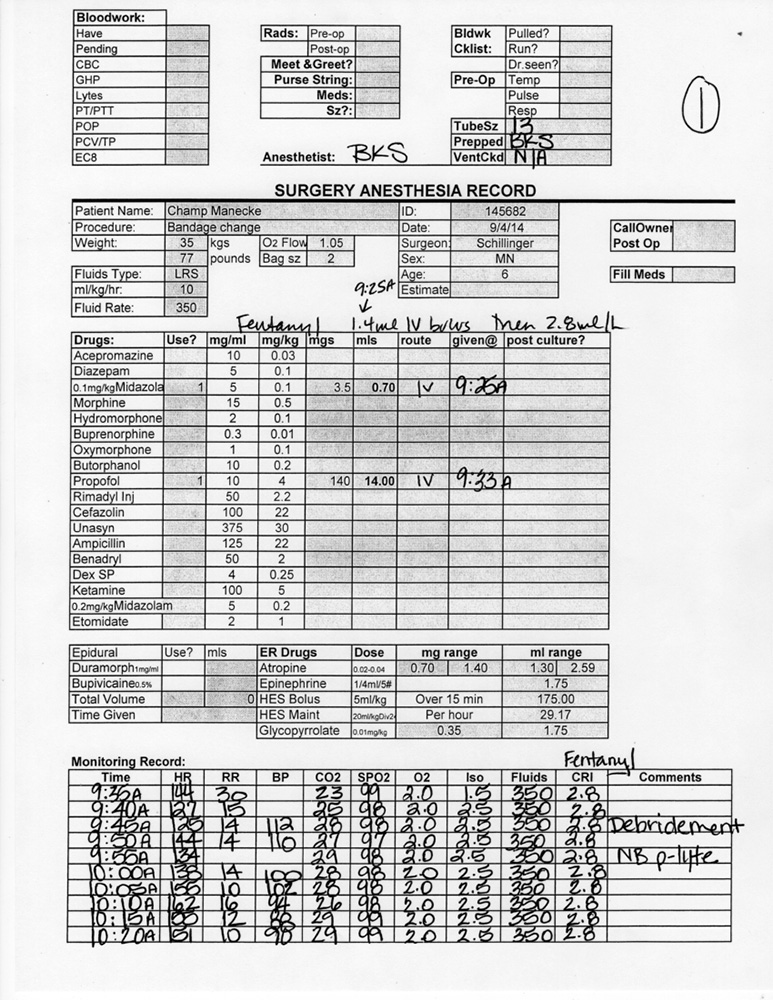 Bloodwork:
Have
Pending
CBC
GHP
Lytes
PT/PTT
POP
PCV/TP
EC8
Rads: Pre-op
Post-op
Meet &Greet?
Purse String:
Meds:
Sz?:
Anesthetist: BKS
Bldwk Pulled?
Cklist: Run?
Dr.seen?
Pre-Op Temp
Pulse
Resp
TubeSz 13
Prepped BKS
VentCkd N/A
1
SURGERY ANESTHESIA RECORD
Patient Name: Champ Manecke ID: 145682
Procedure: Bandage change Date: 9/4/14
Weight: 35 kgs O2 Flow 1.05 Surgeon: Schillinger
77 pounds Bag sz 2 Sex: MN
Fluids Type: LRS Age: 6
ml/kg/hr: 10 Estimate
Fluid Rate: 350
CallOwner
Post Op
Fill Meds
9:25A
↓
Fentanyl 1.4ml IV bolus then 2.8ml/L
Drugs: Use? mg/ml mg/kg mgs mls route given@ post culture?
Acepromazine 10 0.03
Diazepam 5 0.1
0.1mg/kgMidazola 1 5 0.1 3.5 0.70 IV 9:25A
Morphine 15 0.5
Hydromorphone 2 0.1
Buprenorphine 0.3 0.01
Oxymorphone 1 0.1
Butorphanol 10 0.2
Propofol 1 10 4 140 14.00 IV 9:33A
Rimadyl Inj 50 2.2
Cefazolin 100 22
Unasyn 375 30
Ampicillin 125 22
Benadryl 50 2
Dex SP 4 0.25
Ketamine 100 5
0.2mg/kgMidazolam 5 0.2
Etomidate 2 1
Epidural Use? mls ER Drugs Dose mg range ml range
Duramorph1mg/ml Atropine 0.02-0.04 0.70 1.40 1.30 2.59
Bupivicaine0.5% Epinephrine 1/4ml/5# 1.75
Total Volume 0 HES Bolus 5ml/kg Over 15 min 175.00
Time Given HES Maint 20ml/kgDiv2 Per hour 29.17
Glycopyrrolate 0.01mg/kg 0.35 1.75
Monitoring Record: Fentanyl
Time HR RR BP CO2 SPO2 O2 Iso Fluids CRI Comments
9:35A 144 30 23 99 2.0 1.5 350 2.8
9:40A 127 15 25 98 2.0 2.5 350 2.8
9:45A 125 14 112 28 98 2.0 2.5 350 2.8 Debridement
9:50A 144 14 110 27 97 2.0 2.5 350 2.8
9:55A 134 29 98 2.0 2.5 350 2.8 NB p-lyte
10:00A 138 14 100 28 98 2.0 2.5 350 2.8
10:05A 155 10 102 28 98 2.0 2.5 350 2.8
10:10A 162 16 94 26 98 2.0 2.5 350 2.8
10:15A 12 88 29 99 2.0 2.5 350 2.8
10:20A 151 10 90 29 99 2.0 2.5 350 2.8